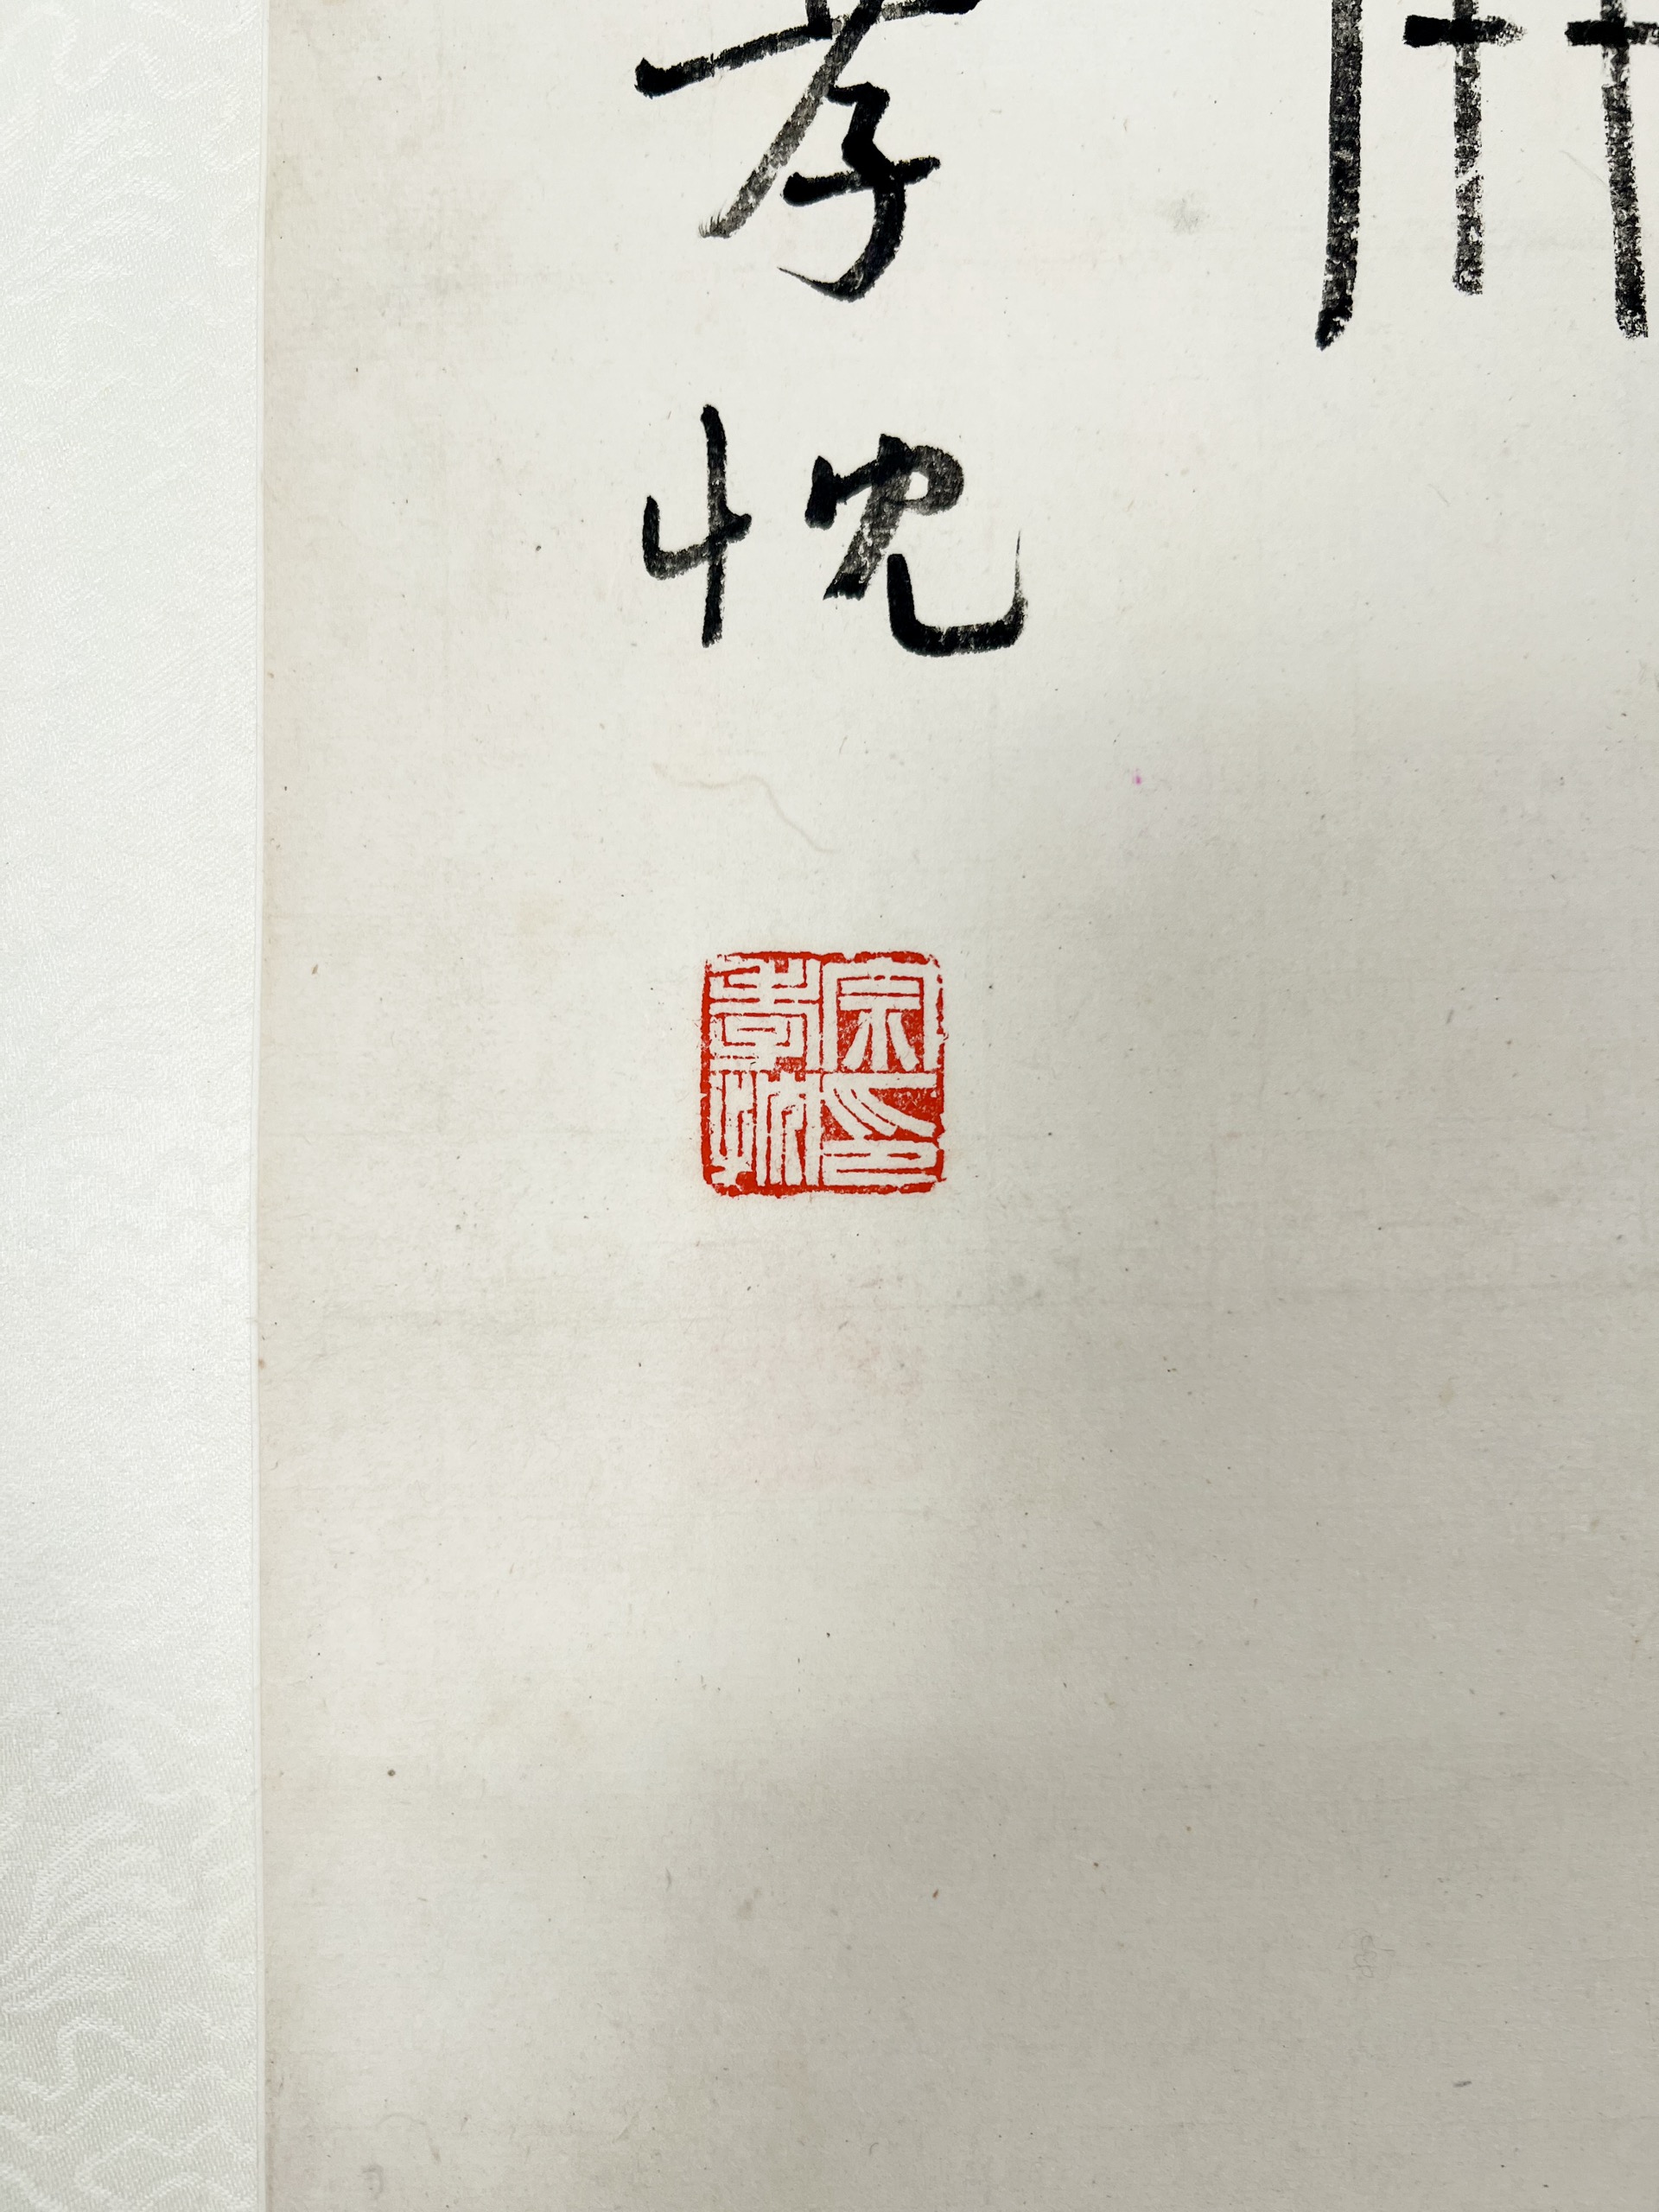 孝忱
宗孝忱印